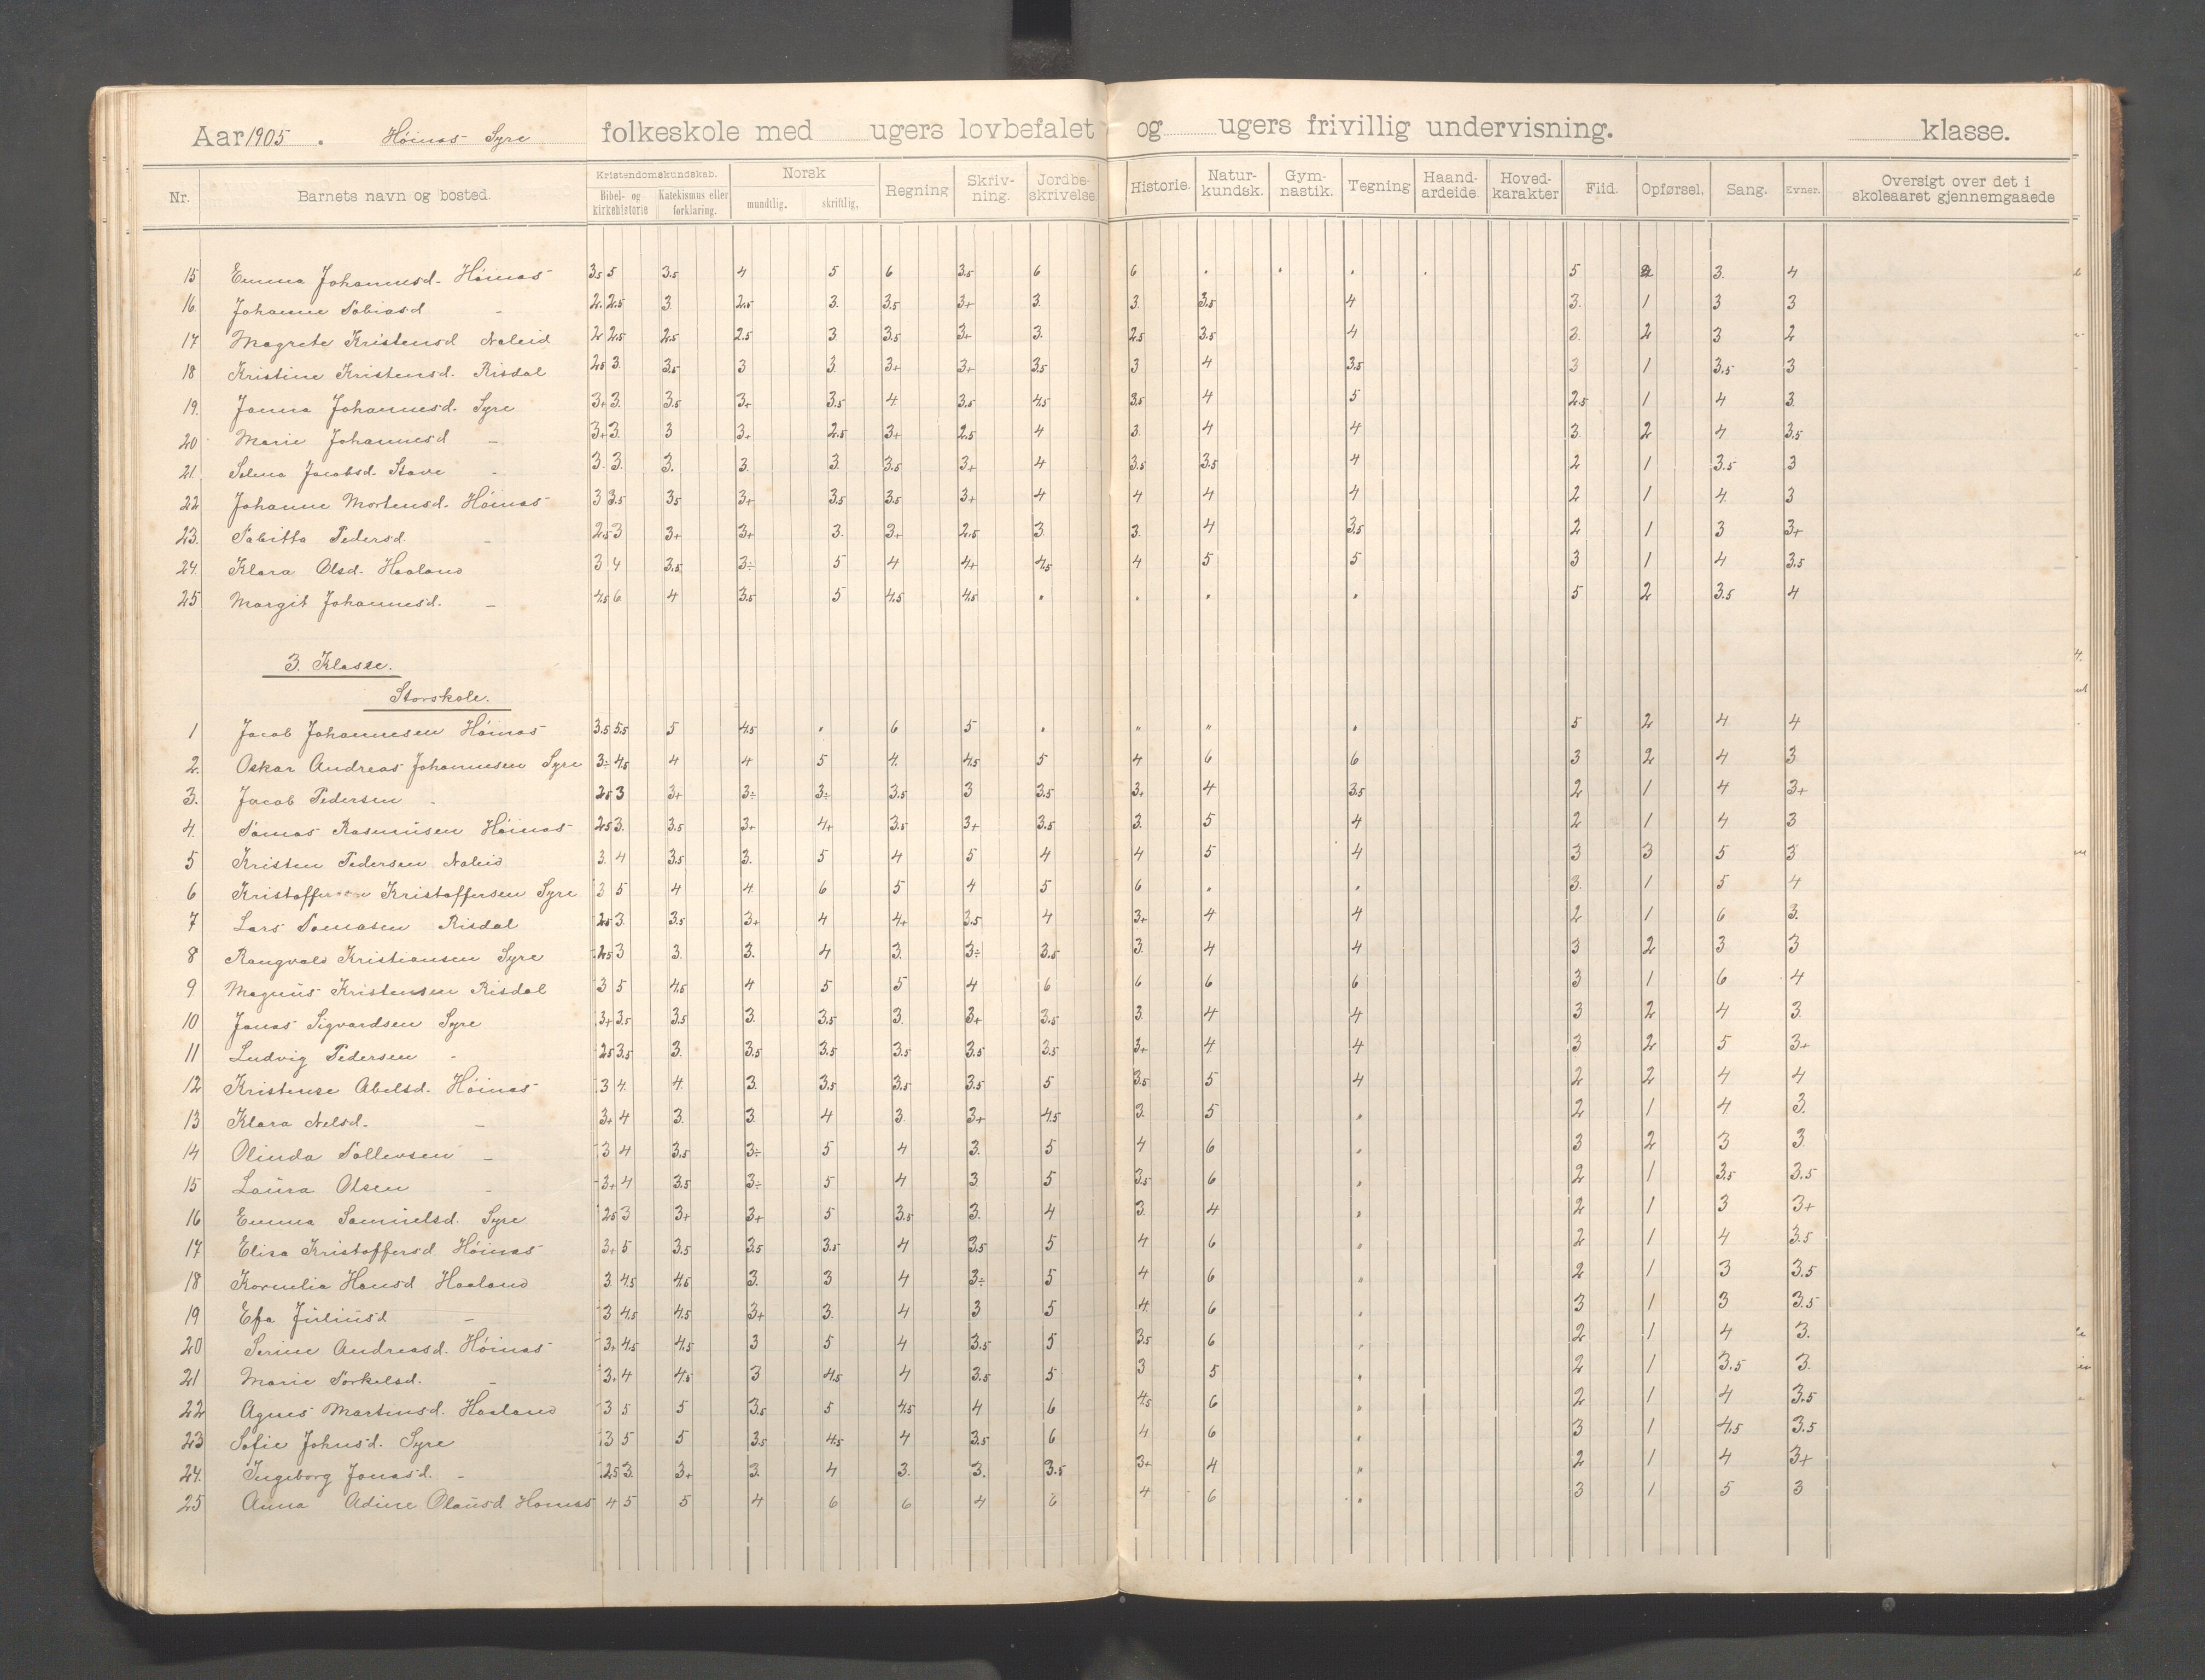 Aar 1905. Höinas Syre folkeskole med ugers lovbefalet og ugers frivillig undervisning. klasse.
Nr. Barnets navn og bosted. Kristendomskundskab. Bibel- og kirkehistorie Katekismus eller forklaring. Norsk mundtlig. skriftlig. Regning Skriv-ning. Jordbe-skrivelse Historie. Natur-kundsk. Gym-nastik. Tegning Haand-ardeide. Hoved-karakter Flid. Opførsel. Sang. Evner. Oversigt over det i skoleaaret gjennemgaaede
15 Emma Johannesd. Höinas 3.5 5 3.5 4 5 6 3.5 6 6 . . . . 5 2 3. 4
16. Johanne Tobiasd - 2. 2.5 3 2.5 3. 3.5 3+ 3. 3. 3.5 4 3. 1 3 3
17 Magrete Kristensd Naleid 2 2.5 2.5 2.5 3 3.5 3+ 3. 2.5 3.5 4 3. 2 3 2
18 Kristine Kristensd. Risdal 2.5 3. 3.5 3 3. 3+ 3+ 3.5 3 4 3.5 3 1 3.5 3
19. Janna Johannesd. Syre 3+ 3. 3.5 3+ 3.5 4. 3.5 4.5 3.5 4 5 2.5 1 4 3.
20 Marie Johannesd - 3+ 3. 3 3+ 2.5 3+ 2.5 4 3. 4 4 3. 2 4 3.5
21. Selma Jacobsd. Stave - 3. 3. 3. 3. 3. 3.5 3+ 4 3.5 3.5 4 2 1 3.5 3
22 Johanne Mortensd. Höinas 3 3.5 3.5 3+ 3.5 3.5 3+ 4 4 4 4 2 1 4. 3
23. Tabitta Pedersd. - 2.5 3 3+ 3+ 3. 3+ 2.5 3. 3. 4 3.5 2 1 3 3+
24. Klara Olsd. Haaland 3 4 3.5 3÷ 5 4 4+ 4.5 4 5 5 3 1 4 3.5
25 Margit Johannesd. - 4.5 6 4 3.5 5 4.5 4.5 . . . . 5 2 3.5 4
3. Klasse.
Storskole.
1 Jacob Johannesen Höinas 3.5 5.5 5 4.5 . 6 5 . " " " 5 2 4 4
2. Oskar Andreas Johannesen Syre 3÷ 4.5 4 4 5 4. 4.5 5 4 6 6 3 2 4 3
3. Jacob Pedersen - 2.5 3 3+ 3÷ 3÷ 3.5 3 3.5 3+ 4 3.5 2 1 4 3+
4. Tomas Rasmusen Höinas 2.5 3. 3.5 3+ 4+ 3.5 3+ 3.5 3. 5 4 2 1 4 3
5 Kristen Pedersen Naleid 3. 4 3.5 3. 5 4 5 4 4 5 4 3 3 5 3
6 Kristoffer Kristoffersen Syre 3 5 4 4. 6 5 4 5 6 . . 3. 1 5 4
7 Lars Tomasen Risdal 2.5 3. 3.5 3+ 4 4+ 3.5 4 3+ 4 4 2 1 6 3.
8 Rangvald Kristiansen Syre 2.5 3 3. 3. 4 3. 3÷ 3.5 3. 4 4 3 2 3 3
9 Magnus Kristensen Risdal 3 5 4.5 4 5 5 4 6 6 6 6 3 1 6 4
10 Jonas Sigvardsen Syre 3+ 3.5 3.5 3. 3.5 3. 3+ 3.5 3. 4 4 3 2 4 3.
11 Ludvig Pedersen - 2.5 3.5 3. 3.5 3.5 3.5 3.5 3.5 3+ 4. 4 3 2 5 3+
12 Kristense Abelsd. Höinas 3 4. 4. 3. 3.5 3.5 3.5 5 3.5 5 4 2 2 4 4
13 Klara Nelsd. - 3+ 4 3. 3. 4 3. 3+ 4.5 3. 5 " 2 1 4 3.
14 Olinda Tollevsen - 3 4 3.5 3÷ 5 4 3. 5 4 6 " 3 2 3 3.
15 Laura Olsen - 3+ 4 3.5 3÷ 5 4 3 5 3.5 6 " 2 1 3.5 3.5
16 Emma Samuelsd. Syre 2.5 3 3+ 3+ 5 3.5 3. 4 3. 4 " 2 1 3 3+
17 Elisa Kristoffersd Höinas 3+ 5 3.5 3.5 3.5 4 3.5 5 4 6 " 2 1 4 3.5
18 Kornelia Hansd Haaland 3. 4.5 4.5 3. 3 4 3÷ 5 4 6 " 2 1 3 3.5
19 Efa Juliusd - 3 4.5 4.5 3+ 3. 4 3 5 4. 6 " 3 1 3 3.5
20 Serine Andreasd. Höinas 3+ 4.5 4.5 3 5 4 3.5 5 3.5 6 " 2 1 4 3.
21 Marie Torkelsd. - 3+ 4 4.5 3 4.5 4 3.5 5 3 5 " 2 1 3.5 3.
22 Agnes Martinsd. Haaland 3 5 5 3.5 5 4.5 4 6 4.5 6 " 2 1 4 3.5
23 Sofie Johnsd. Syre 3 5 5 3.5 4.5 4 3.5 6 4 6 " 3 1 4.5 3.5
24. Ingeborg Jonasd. - 2.5 3. 3+ 3. 4 3. 3. 3.5 3+ 4 " 2 1 4 3+
25 Anna Adine Olausd Höinas 4 5 5 4 6 6 4 6 4 6 " 3 1 5 3